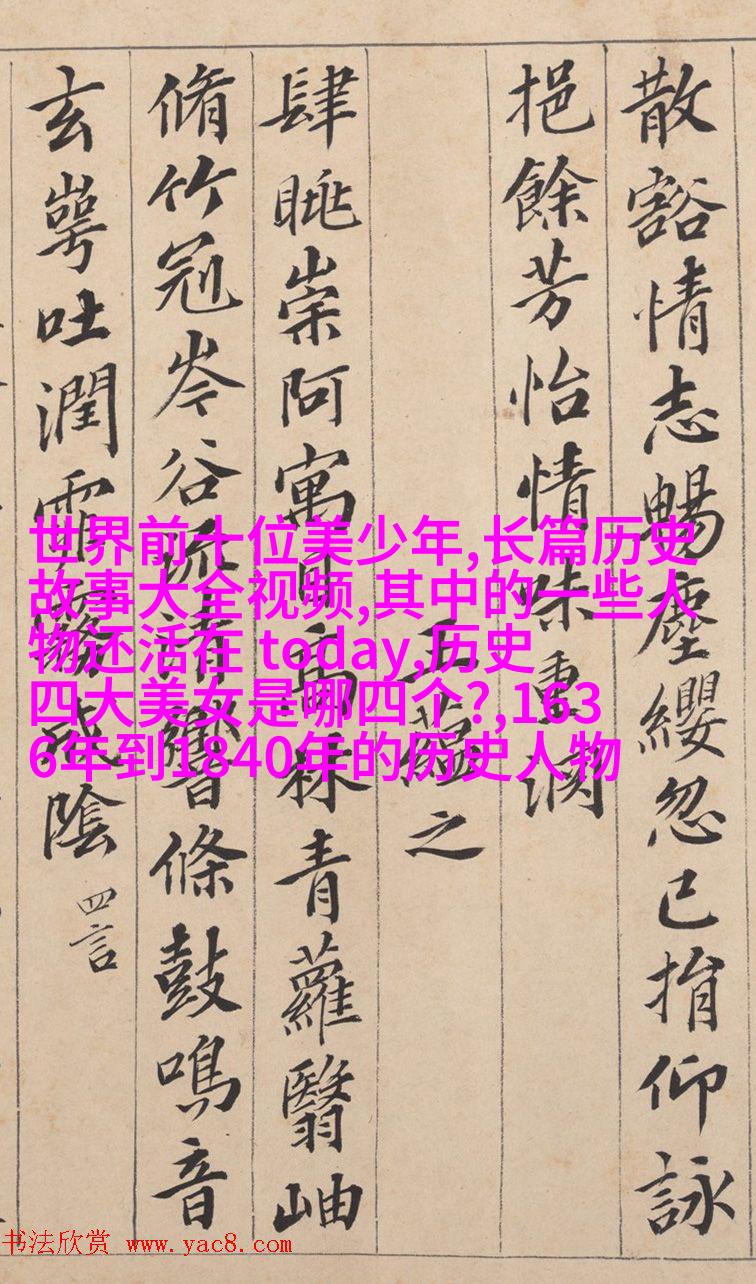 散豁情志暢塵纓忽已捐仰詠
挹餘芳怡情味重淵
王蘊之
肆眺崇阿寓目高林青蘿翳岫
脩竹冠岑谷流清響條鼓鳴音
玄崿吐潤霏霧成陰 四言
世界前十位美少年,长篇历史
故事大全视频,其中的一些人
物还活在 today,历史
四大美女是哪四个?,163
6年到1840年的历史人物
书法欣赏 www.yac8.com